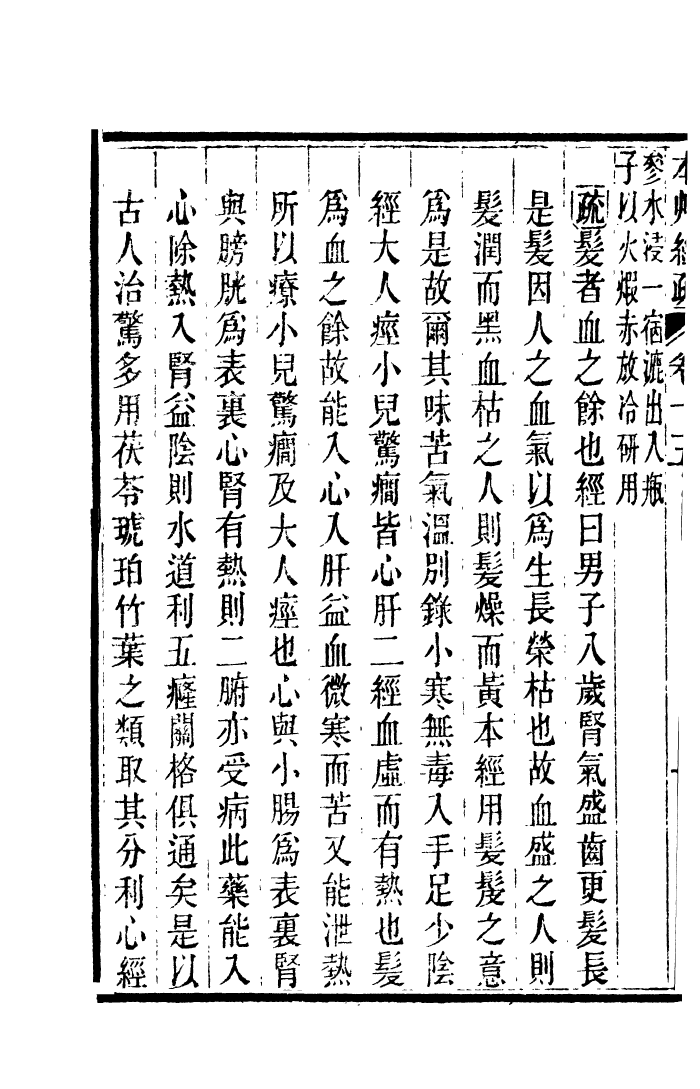 本草經疏 卷十五
蔘水浸一宿漉出入瓶
子以火煆赤放冷研用
疏髮者血之餘也經曰男子八歲腎氣盛齒更髮長
是髮因人之血氣以為生長榮枯也故血盛之人則
髮潤而黑血枯之人則髮燥而黃本經用髮髲之意
為是故爾其味苦氣溫別錄小寒無毒入手足少陰
經大人痙小兒驚癇皆心肝二經血虛而有熱也髮
為血之餘故能入心入肝益血微寒而苦又能泄熱
所以療小兒驚癇及大人痙也心與小腸為表裏腎
與膀胱為表裏心腎有熱則二腑亦受病此藥能入
心除熱入腎益陰則水道利五癃關格俱通矣是以
古人治驚多用茯苓琥珀竹葉之類取其分利心經